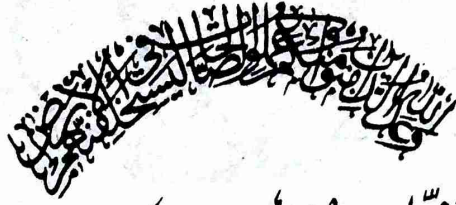 وعد الله الذين آمنوا منكم وعملوا الصالحات ليستخلفنهم في الأرض